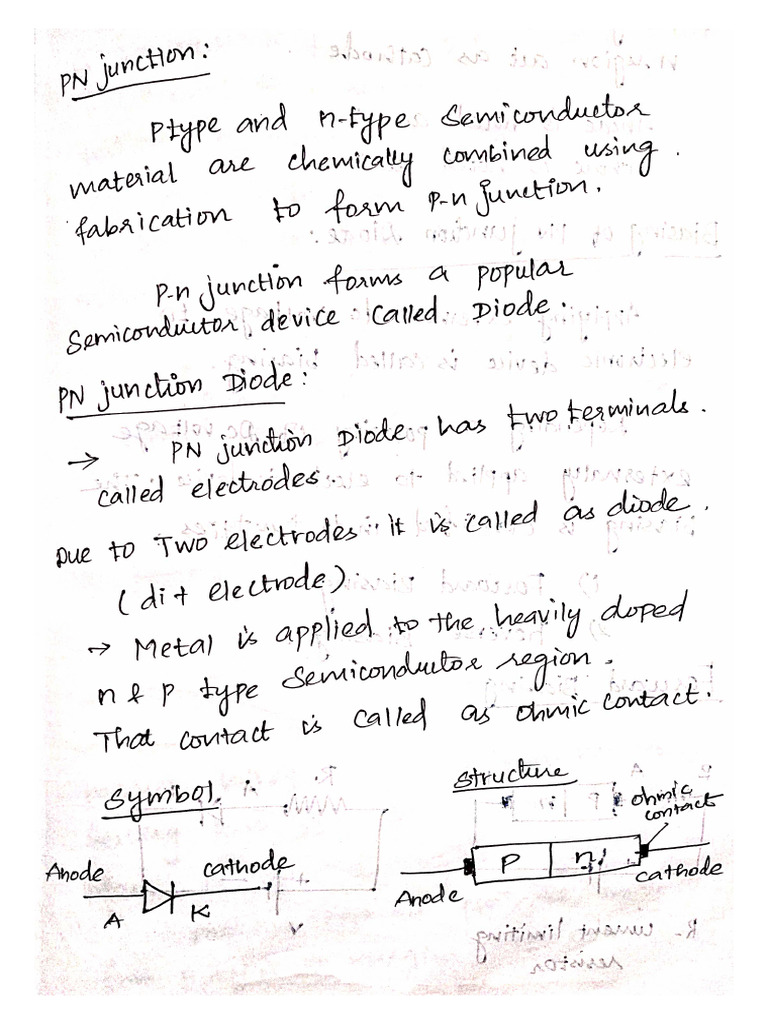 PN junction:
Ptype and n-type Semiconductor
material are chemically combined using
fabrication to form p-n junction.
P-n junction forms a popular
Semiconductor device called Diode.
PN junction Diode:
→ PN junction Diode has two terminals.
called electrodes.
Due to Two electrodes it is called as diode.
(di + electrode)
→ Metal is applied to the heavily doped
n & p type semiconductor region.
That contact is called as ohmic contact.
Symbol:
Anode
cathode
A
K
Structure
ohmic
contact
P
n
Anode
cathode